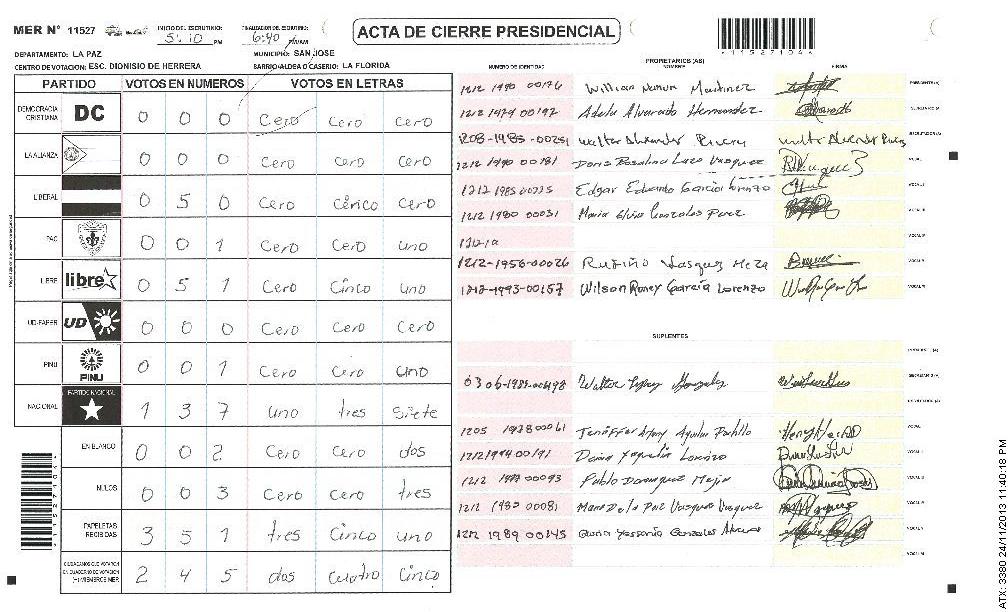 MER N° 11527 INICIO DEL ESCRUTINIO: 5:10 PM FINALIZACION DEL ESCRUTINIO: 6:40 PM/AM ACTA DE CIERRE PRESIDENCIAL
DEPARTAMENTO: LA PAZ MUNICIPIO: SAN JOSE
CENTRO DE VOTACION: ESC. DIONISIO DE HERRERA BARRIO/ALDEA O CASERIO: LA FLORIDA
PARTIDO VOTOS EN NUMEROS VOTOS EN LETRAS
DEMOCRACIA CRISTIANA DC 0 0 0 Cero Cero Cero
LA ALIANZA 0 0 0 Cero Cero Cero
LIBERAL 0 5 0 Cero Cinco Cero
PAC 0 0 1 Cero Cero uno
LIBRE libre 0 5 1 Cero Cinco uno
UD-FAPER UD 0 0 0 Cero Cero Cero
PINU PINU 0 0 1 Cero Cero uno
NACIONAL PARTIDO NACIONAL 1 3 7 uno tres siete
EN BLANCO 0 0 2 Cero Cero dos
NULOS 0 0 3 Cero Cero tres
PAPELETAS RECIBIDAS 3 5 1 tres Cinco uno
CIUDADANOS QUE VOTARON EN CUADERNO DE VOTACION (+) MIEMBROS MER 2 4 5 dos cuatro Cinco
PROPIETARIOS (AS)
NUMERO DE IDENTIDAD NOMBRE FIRMA
1212 1990 00176 William Ramon Martinez PRESIDENTE (A)
1212 1974 00197 Adela Alvarado Hernandez SECRETARIO (A)
1208-1985-00251 ESCRUTADOR (A)
1212 1990 00181 Doris Rosalina Lazo Vasquez VOCAL I
1212 1985 00225 Edgar Eduardo Garcia Lorenzo VOCAL II
1212 1980 00031 Maria Elvia Gonzales Perez
1212-1956-00026 Rufino Vasquez Meza
1212-1993-00157 Wilson Roney Garcia Lorenzo
SUPLENTES
0306-1982-00498 Walter Gonzalez SECRETARIO (A)
1205 1978 00061 Aguilar Padillo VOCAL I
1212 1994 00191 Lorenzo
1212 1977 00093 Pablo Dominguez Mejia
1212 1980 00081 Maria De la Paz Vasquez Vasquez
1212 1989 00145 Gloria Yessenia Gonzales
1152710
ATX: 3380 24/11/2013 11:40:18 PM